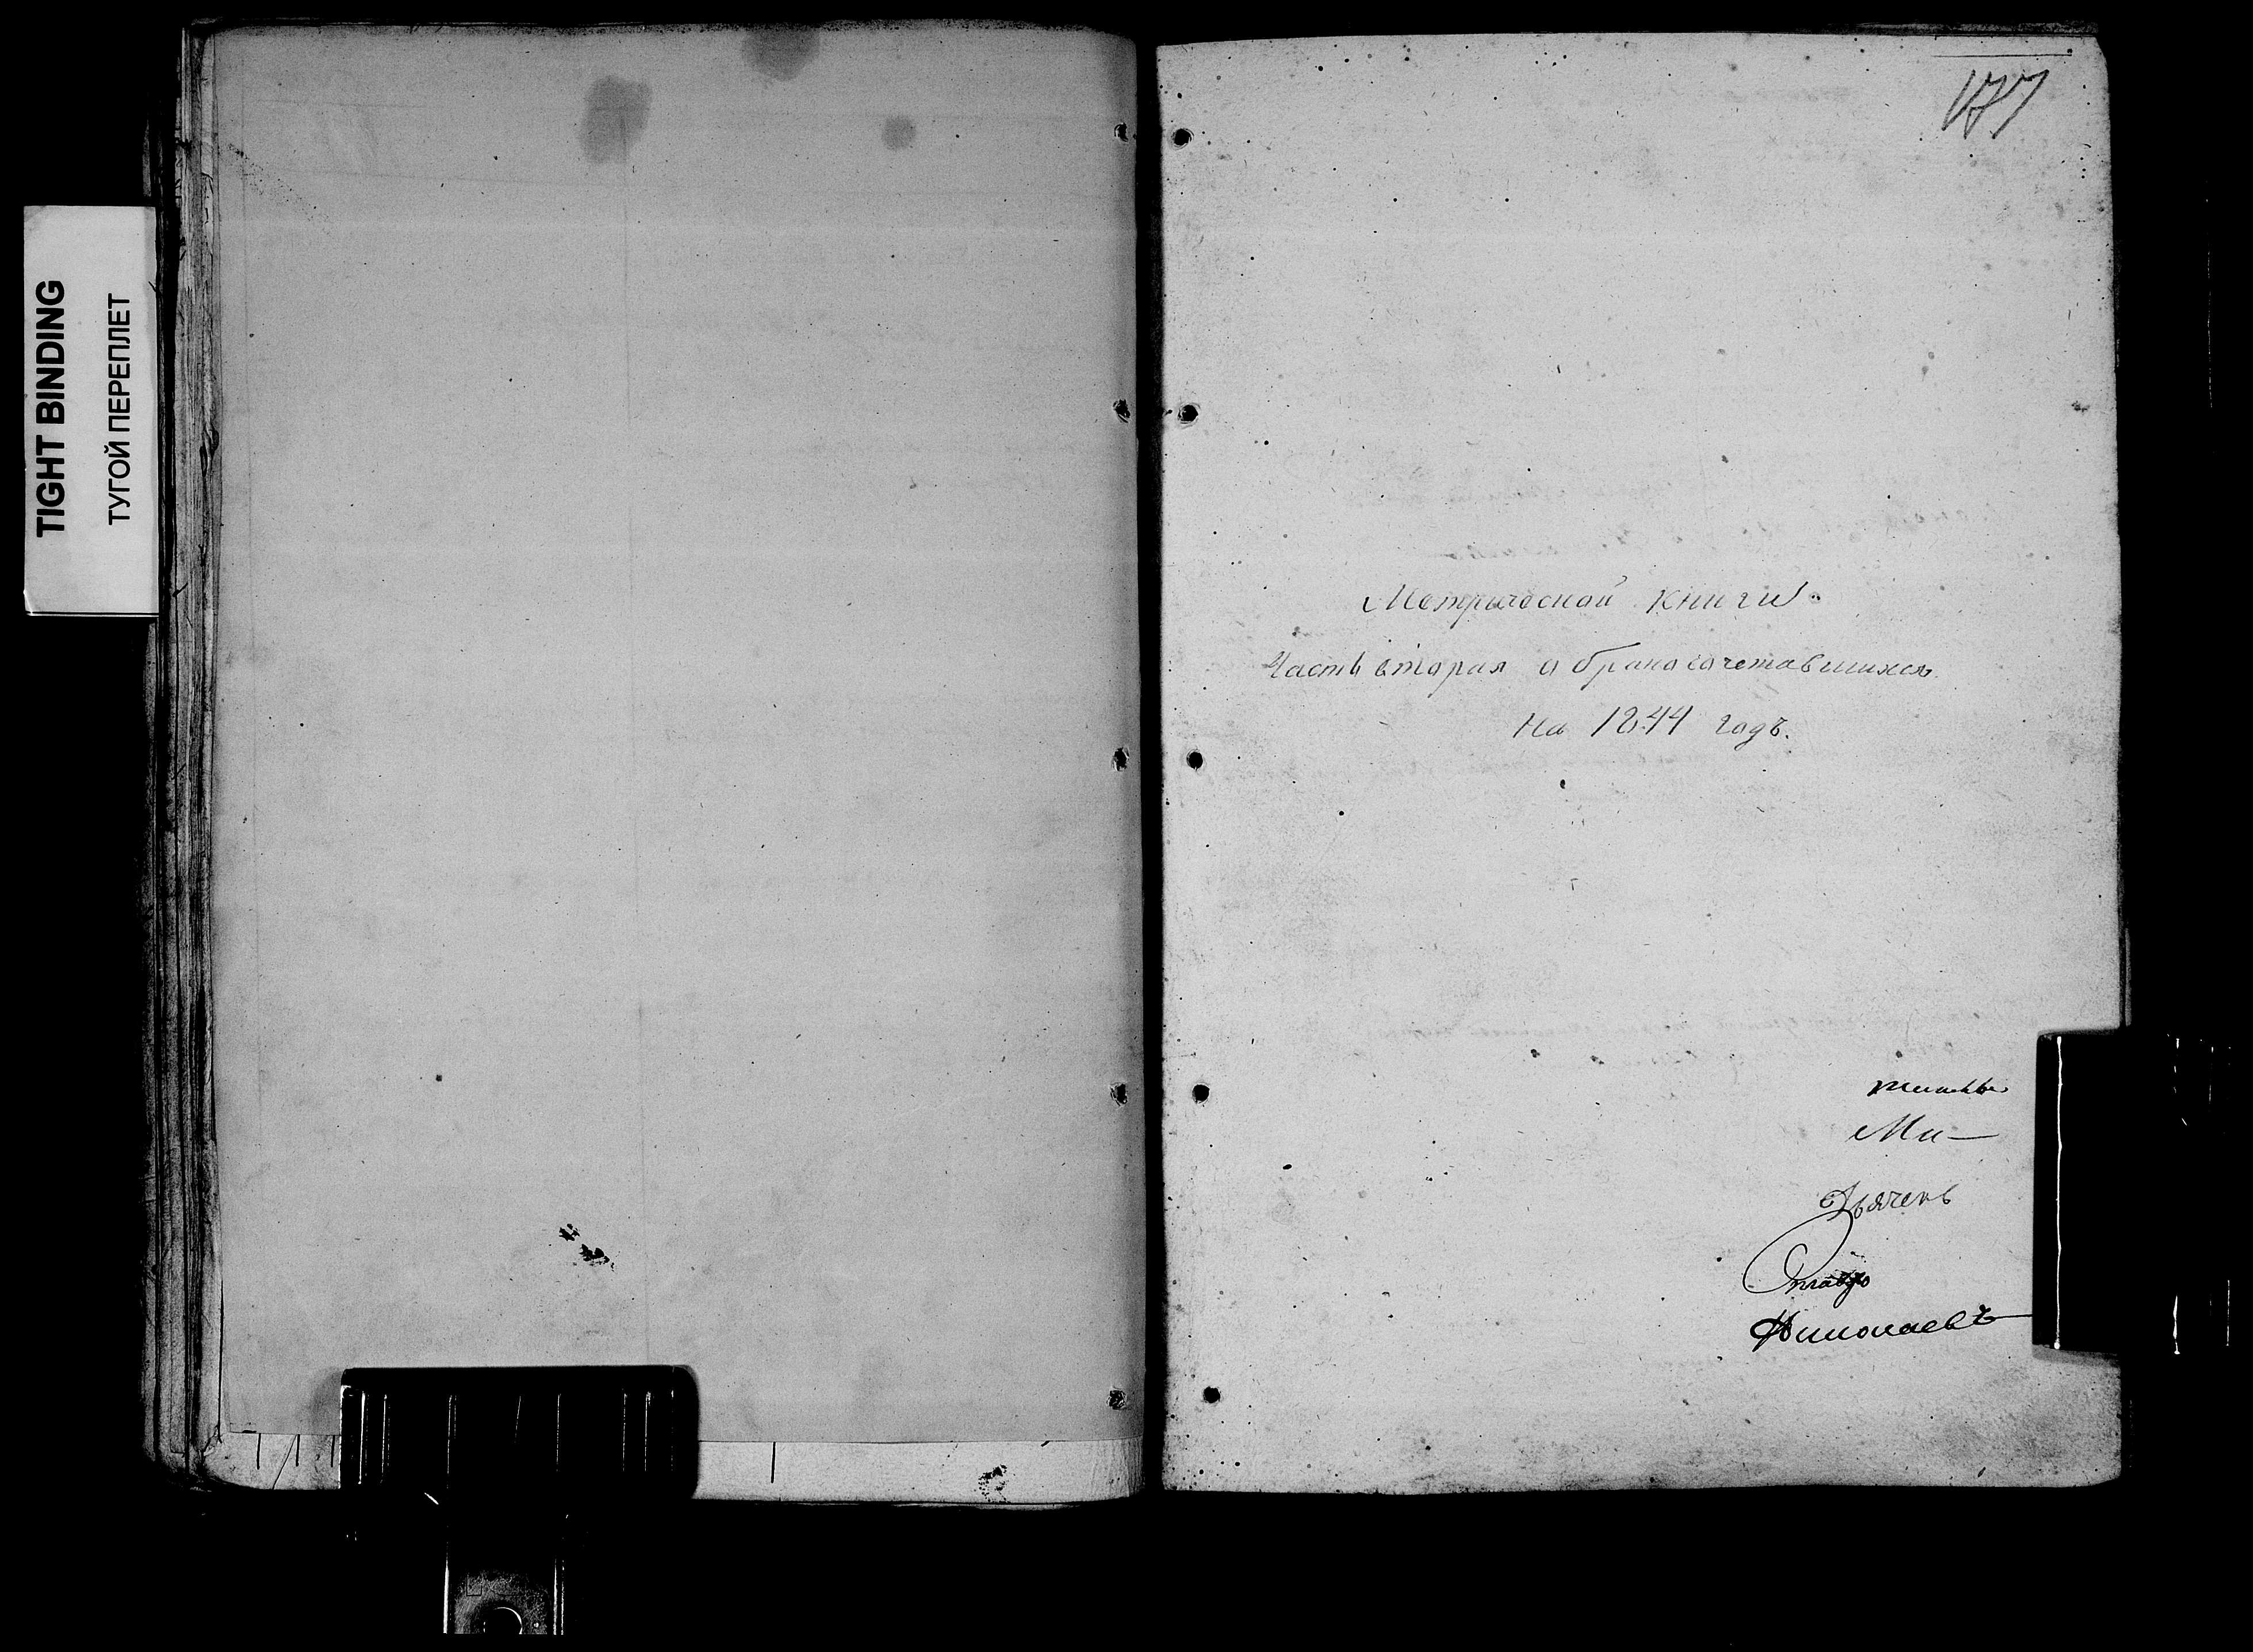 TIGHT BINDING
ТУГОЙ ПЕРЕПЛЕТ
177
Метрической книги
Часть вторая о бракосочетавшихся
на 1844 годъ.
Ми—
Дьячекъ
Николаевъ